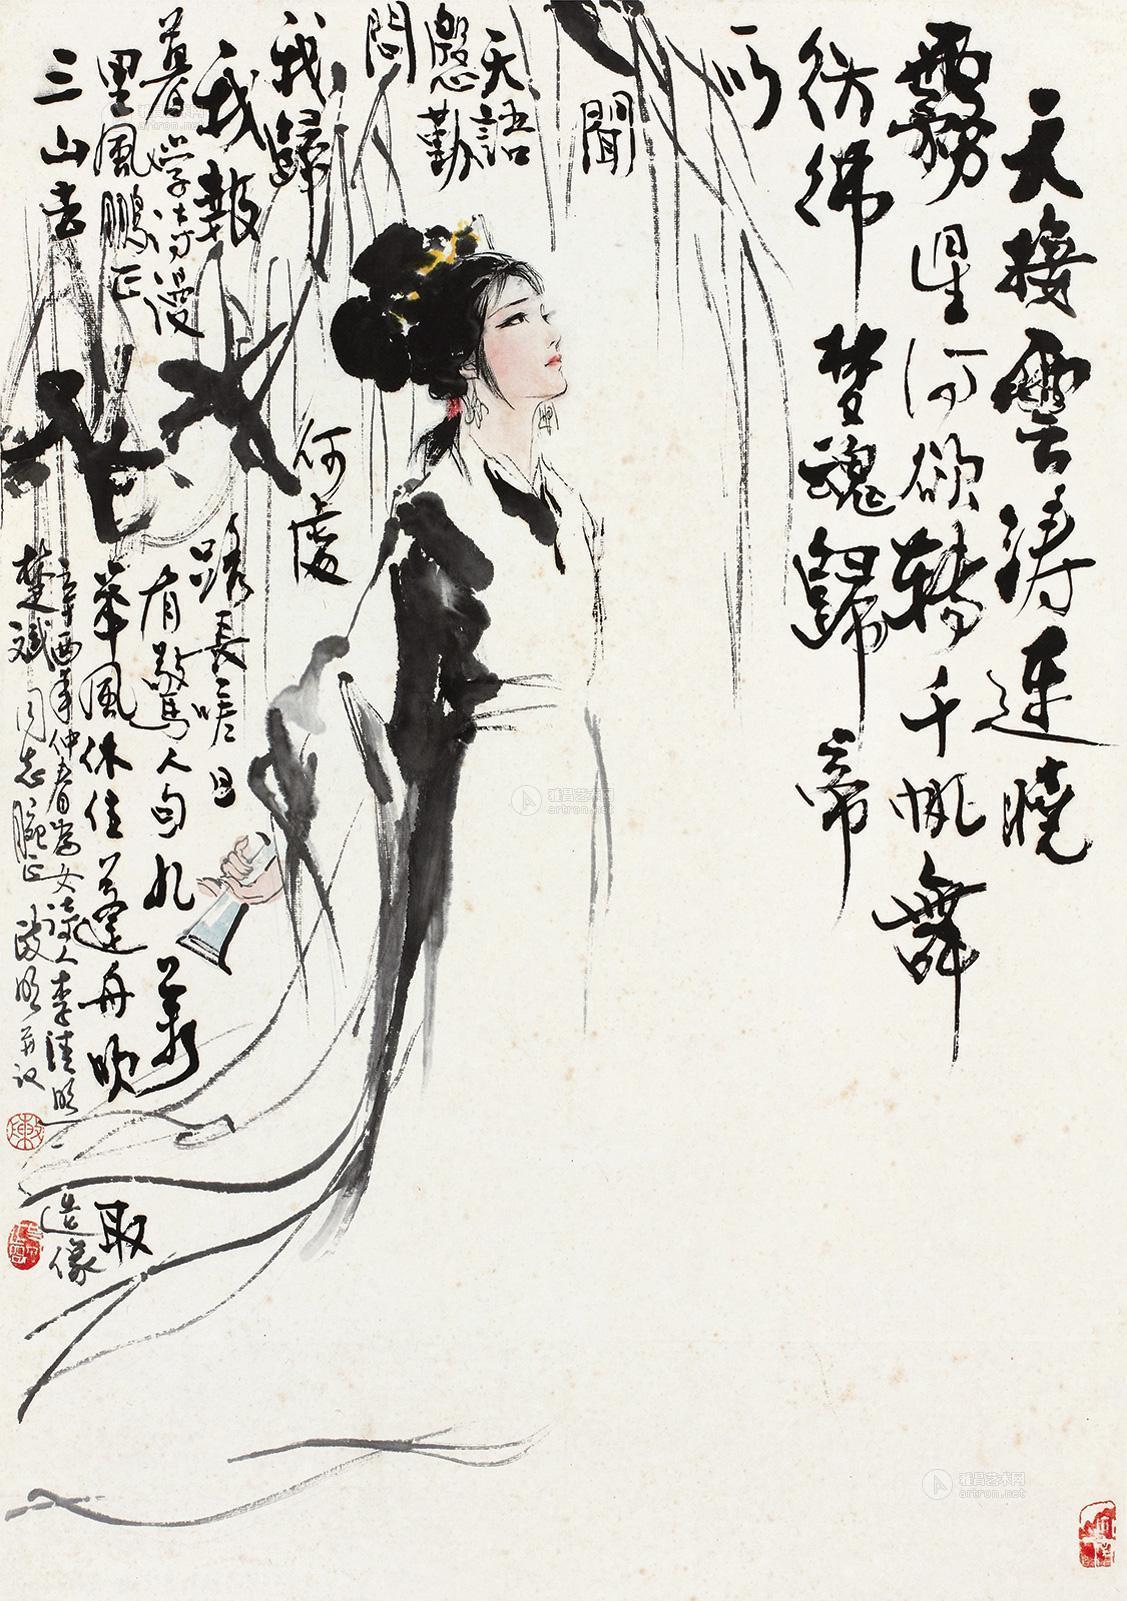 天接雲濤連曉
霧星河欲轉千帆舞
彷彿夢魂歸帝
所
聞
天語
慇勤
問
我歸何處
我報路長嗟日
暮學詩漫有驚人句九萬
里風鵬正舉風休住蓬舟吹取
三山去
辛酉年仲春寫女詩人李清照造像
楚斌同志腕正 政明并记
雅昌艺术网
artron.net
雅昌艺术网
artron.net